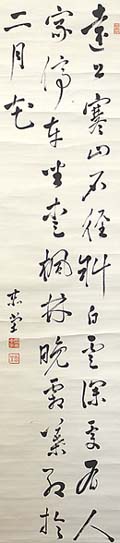 遠上寒山石徑斜白雲深處有人
家停車坐愛楓林晚霜葉紅於
二月花